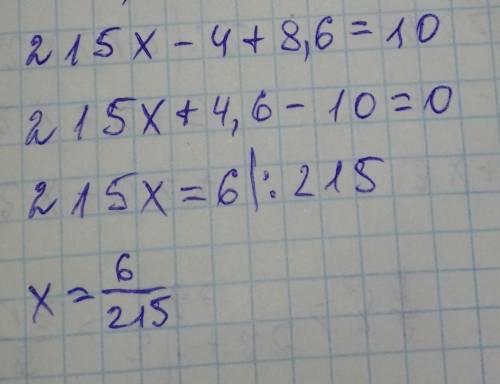 215x - 4 + 8,6 = 10
215x + 4,6 - 10 = 0
215x = 6 |: 215
x = 6/215